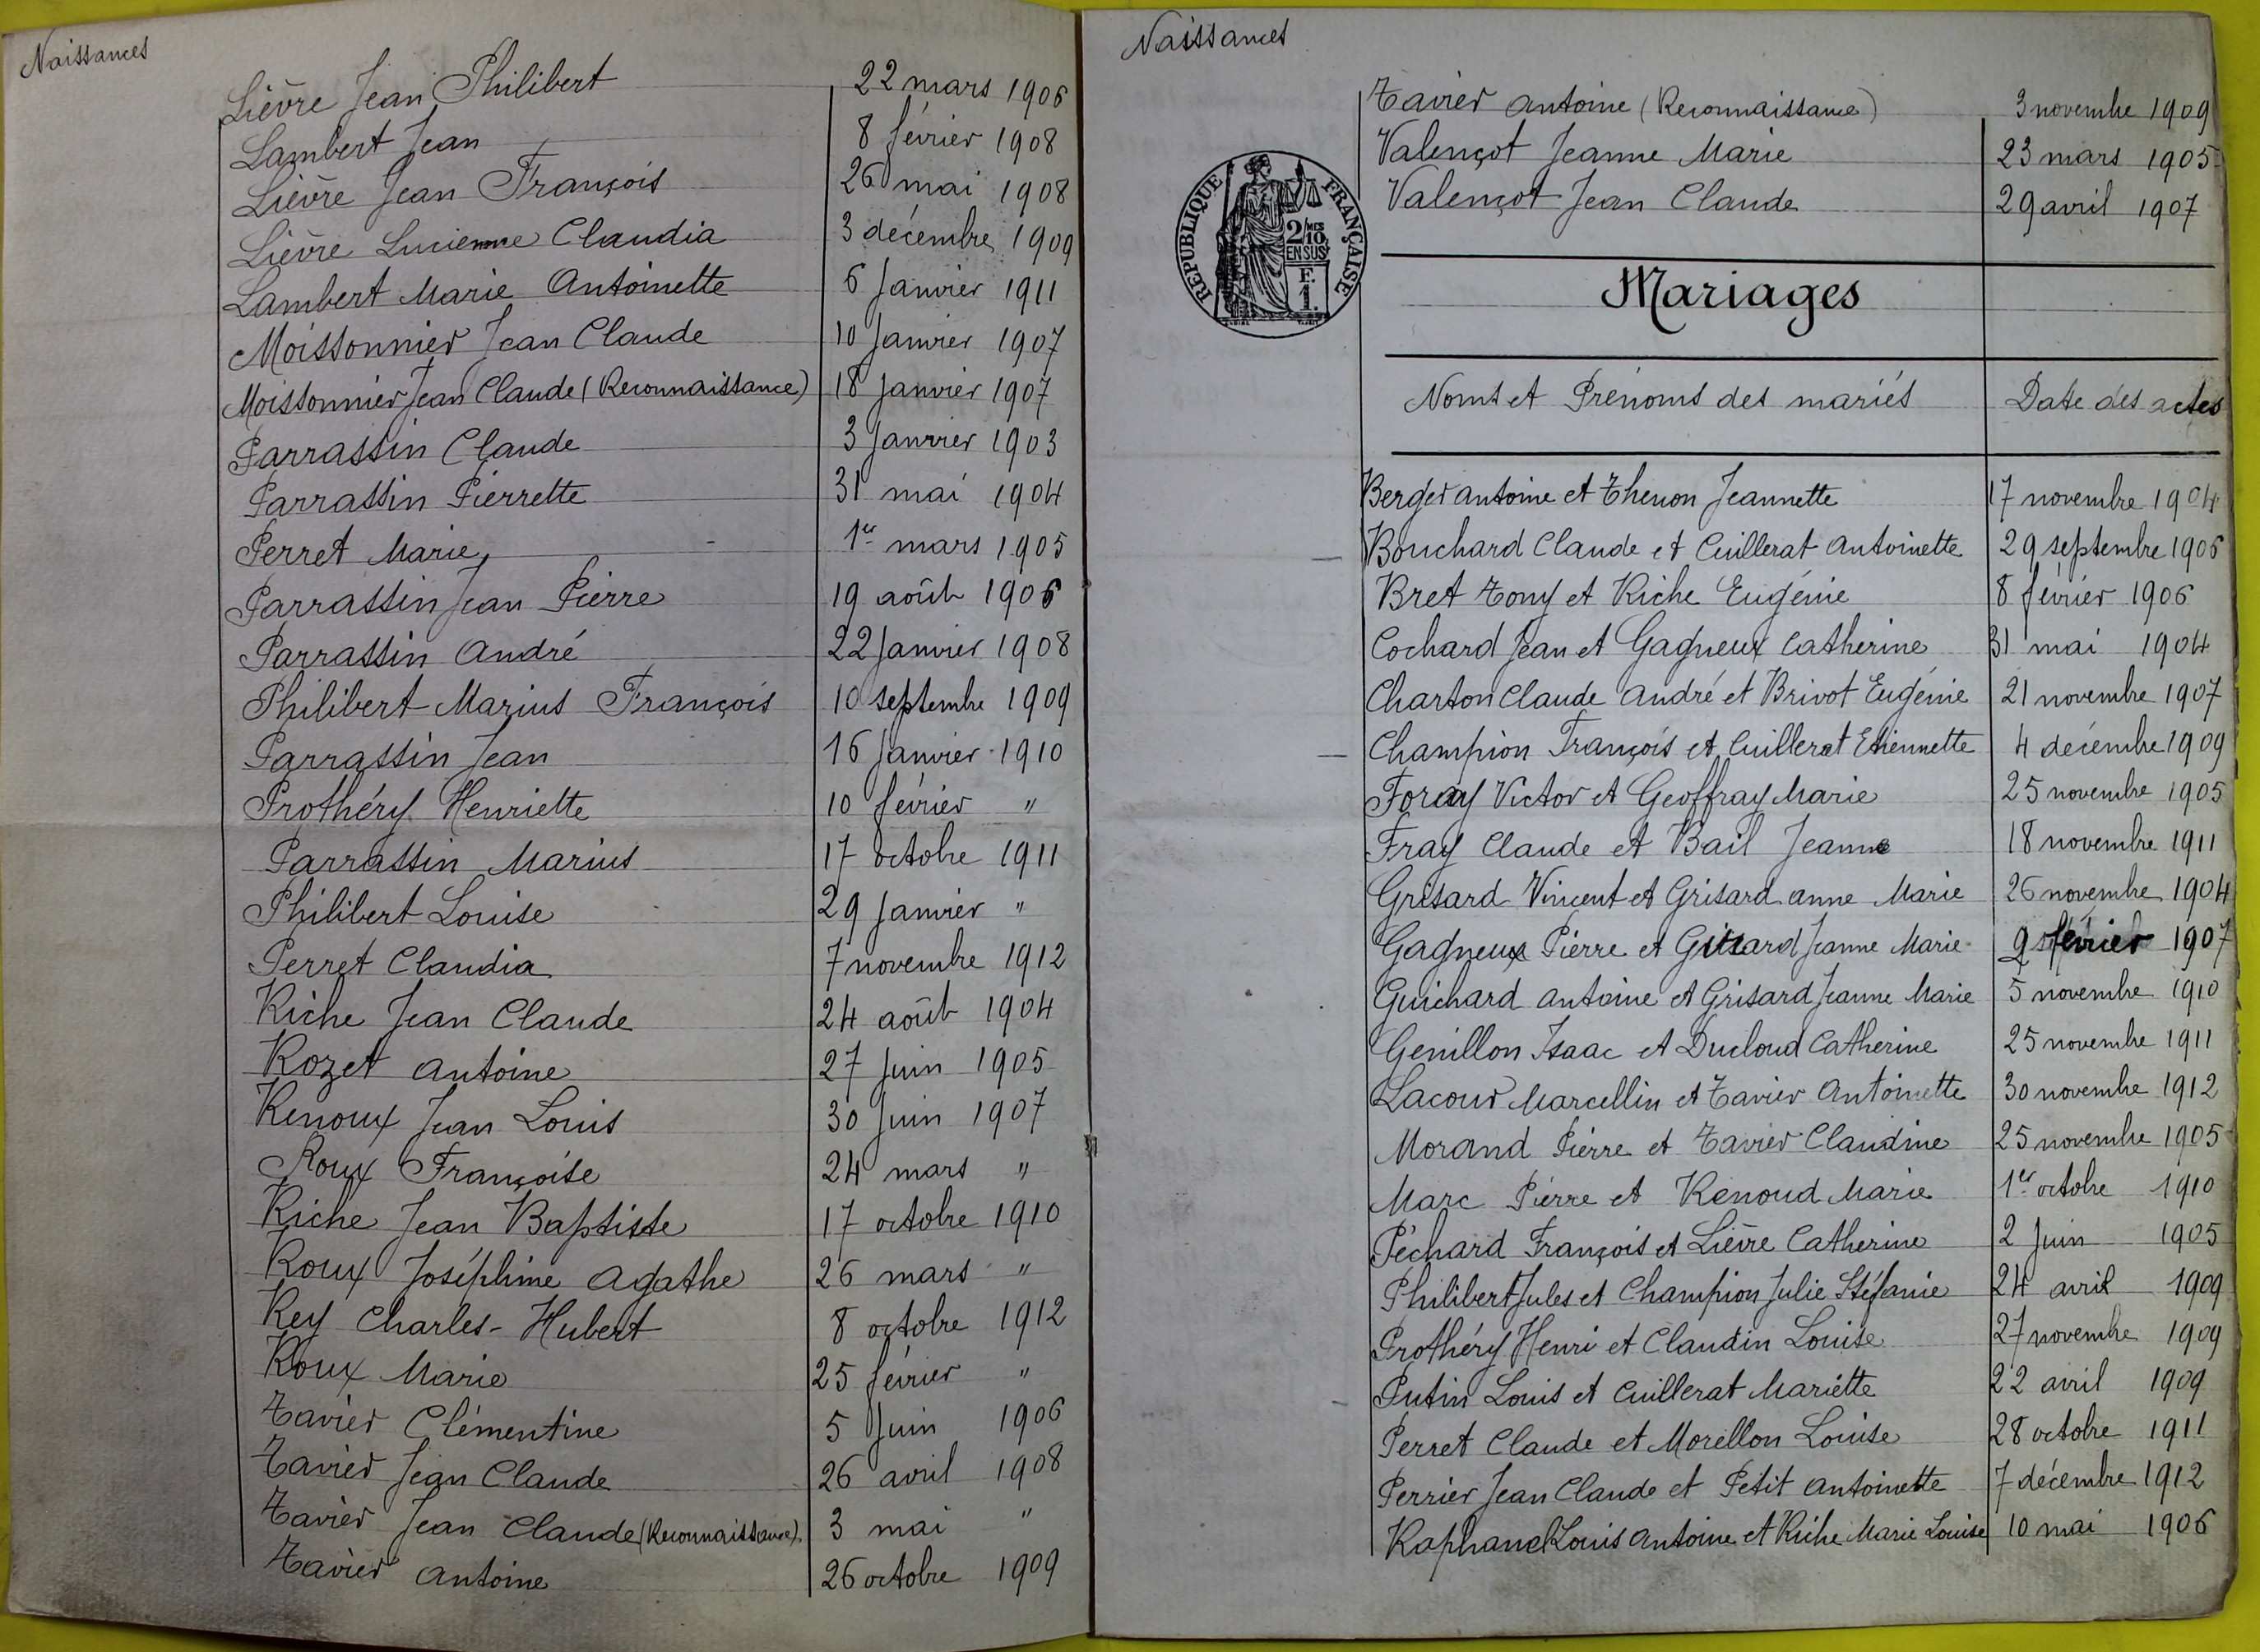 Naissances
Lièvre Jean Philibert 22 mars 1906
Lambert Jean 8 février 1908
Lièvre Jean François 26 mai 1908
Lièvre Lucienne Claudia 3 décembre 1909
Lambert Marie Antoinette 6 Janvier 1911
Moissonnier Jean Claude 10 Janvier 1907
Moissonnier Jean Claude (Reconnaissance) 18 Janvier 1907
Parrassin Claude 3 Janvier 1903
Parrassin Pierrette 31 mai 1904
Perret Marie 1er mars 1905
Parrassin Jean Pierre 19 août 1906
Parrassin André 22 Janvier 1908
Philibert Marius François 10 septembre 1909
Parrassin Jean 16 Janvier 1910
Prothéry Henriette 10 février "
Parrassin Marius 17 octobre 1911
Philibert Louise 29 Janvier "
Perret Claudia 7 novembre 1912
Riche Jean Claude 24 août 1904
Rozet Antoine 27 Juin 1905
Renoux Jean Louis 30 Juin 1907
Roux Françoise 24 mars "
Riche Jean Baptiste 17 octobre 1910
Roux Joséphine Agathe 26 mars "
Rey Charles-Hubert 8 octobre 1912
Roux Marie 25 février "
Tavier Clémentine 5 Juin 1906
Tavier Jean Claude 26 avril 1908
Tavier Jean Claude (Reconnaissance) 3 mai "
Tavier Antoine 26 octobre 1909
Naissances
Tavier Antoine (Reconnaissance) 3 novembre 1909
Valençot Jeanne Marie 23 mars 1905
Valençot Jean Claude 29 avril 1907
RÉPUBLIQUE FRANÇAISE
2/MES
10
EN SUS
F.
1.
Mariages
Noms et Prénoms des mariés Date des actes
Berger Antoine et Thenon Jeannette 17 novembre 1904
Bouchard Claude et Cuillerat Antoinette 29 septembre 1906
Bret Tony et Riche Eugénie 8 février 1906
Cochard Jean et Gagneux Catherine 31 mai 1904
Charton Claude André et Brivot Eugénie 21 novembre 1907
Champion François et Cuillerat Etiennette 4 décembre 1909
Foray Victor et Geoffray Marie 25 novembre 1905
Fray Claude et Bail Jeanne 18 novembre 1911
Grisard Vincent et Grisard Anne Marie 26 novembre 1904
Gagneux Pierre et Jeanne Marie février 1907
Guichard Antoine et Grisard Jeanne Marie 5 novembre 1910
Genillon Isaac et Ducloud Catherine 25 novembre 1911
Lacour Marcellin et Tavier Antoinette 30 novembre 1912
Morand Pierre et Tavier Claudine 25 novembre 1905
Marc Pierre et Renoud Marie 1er octobre 1910
Péchard François et Lièvre Catherine 2 Juin 1905
Philibert Jules et Champion Julie Stéfanie 24 avril 1909
Prothéry Henri et Claudin Louise 27 novembre 1909
Putin Louis et Cuillerat Mariette 22 avril 1909
Perret Claude et Morellon Louise 28 octobre 1911
Perrier Jean Claude et Petit Antoinette 7 décembre 1912
Raphanel Louis Antoine et Riche Marie Louise 10 mai 1906